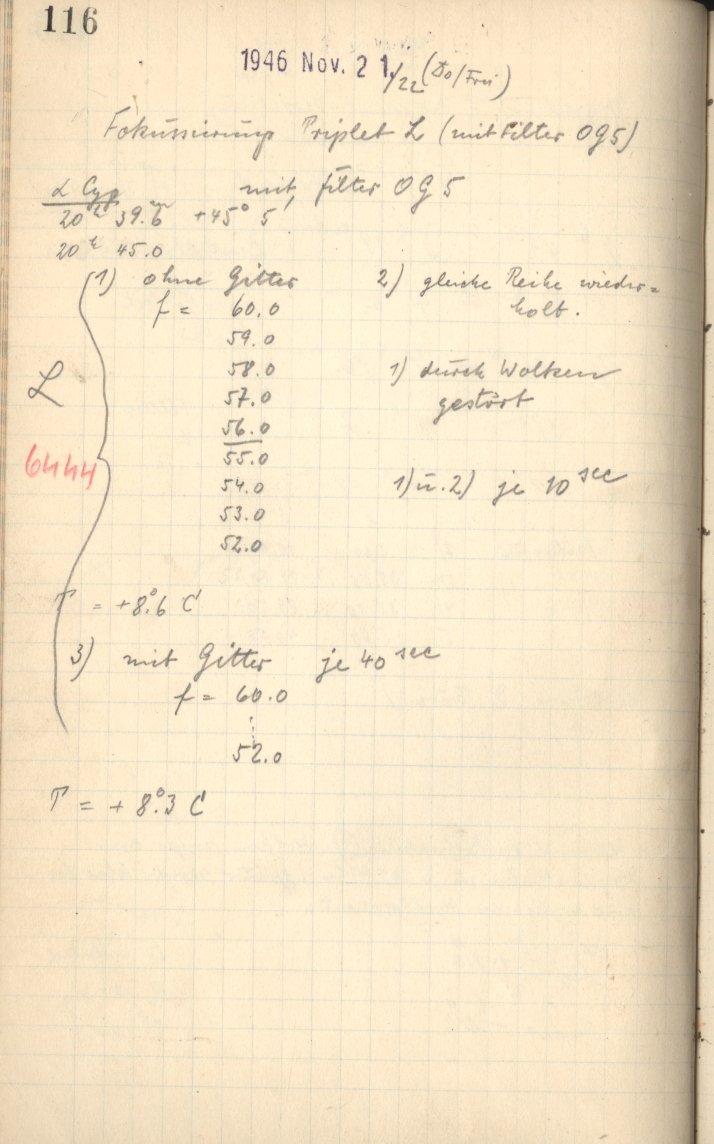 116
1946 Nov. 21./22 (Do/Frei)
Fokussierung Triplet L (mit Filter OG5)
α Cyg mit Filter OG 5
20h 39.6m +45° 5'
20h 45.0
1) ohne Gitter
f = 60.0
59.0
58.0
57.0
56.0
55.0
54.0
53.0
52.0
2) gleiche Reihe wieder=
holt.
1) durch Wolken
gestört
1) u. 2) je 10 sec
L
6444
T = +8°.6 C
3) mit Gitter je 40 sec
f = 60.0
⋮
52.0
T = + 8°.3 C